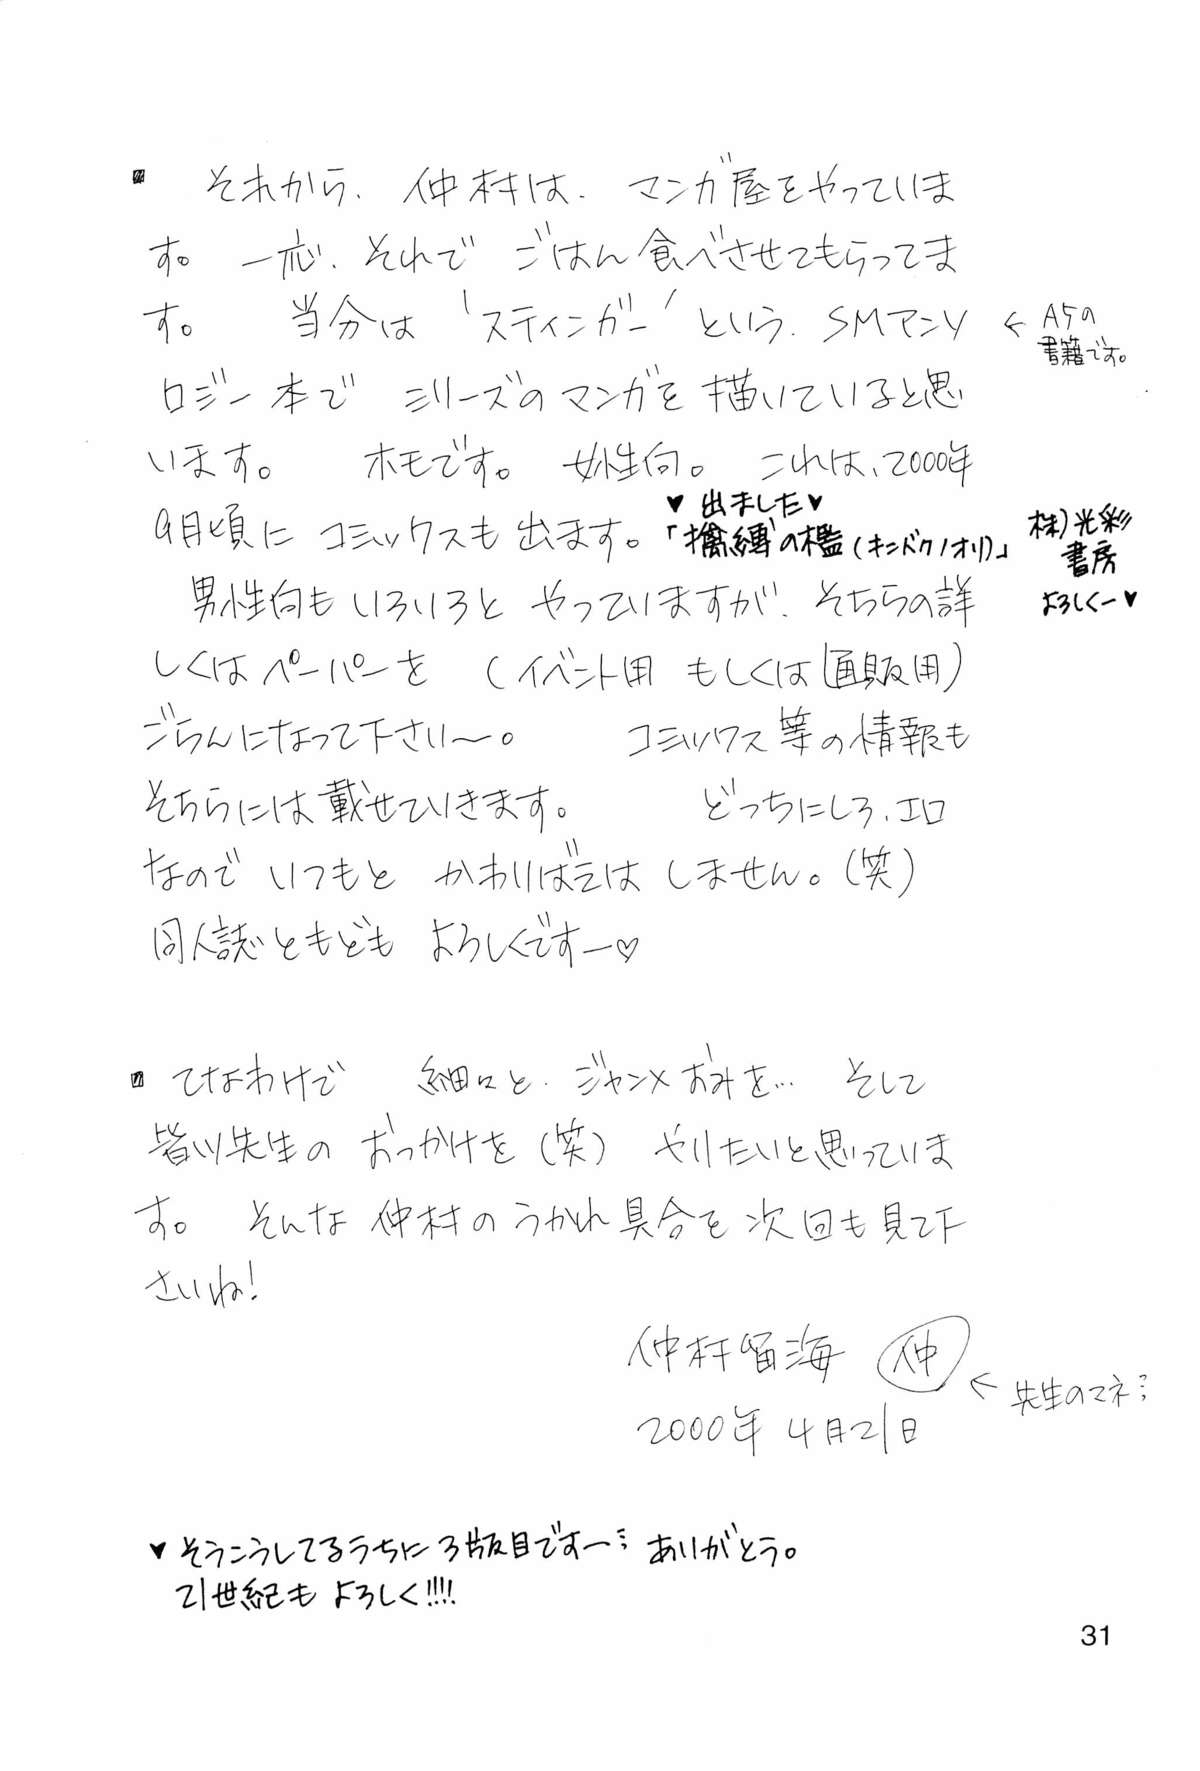 それから、仲村は、マンガ屋をやっていま
す。一応、それで ごはん食べさせてもらってま
す。 当分は 'スティンガー' という、SMアンソ
← A5の
書籍です。
ロジー本で シリーズのマンガを描いていると思
います。 ホモです。 女性向。 これは、2000年
♥ 出ました♥
9月頃に コミックスも出ます。
「擒縛の檻(キンバクノオリ)」
株)光彩
書房
よろしくー♥
男性向も いろいろと やっていますが、そちらの詳
しくはペーパーを (イベント用 もしくは通販用)
ごらんになって下さい〜。 コミックス等の情報も
そちらには載せていきます。 どっちにしろ、エロ
なので いつもと かわりばえは しません。(笑)
同人誌ともども よろしくですー♡
てなわけで 細々と、ジャン×おみを… そして
皆川先生の おっかけを(笑) やりたいと思っていま
す。 そんな 仲村の うかれ具合を 次回も見て下
さいね!
仲村留海 仲
← 先生のマネ…
2000年 4月21日
♥ そうこうしてるうちに 3版目ですー… ありがとう。
21世紀も よろしく!!!!
31